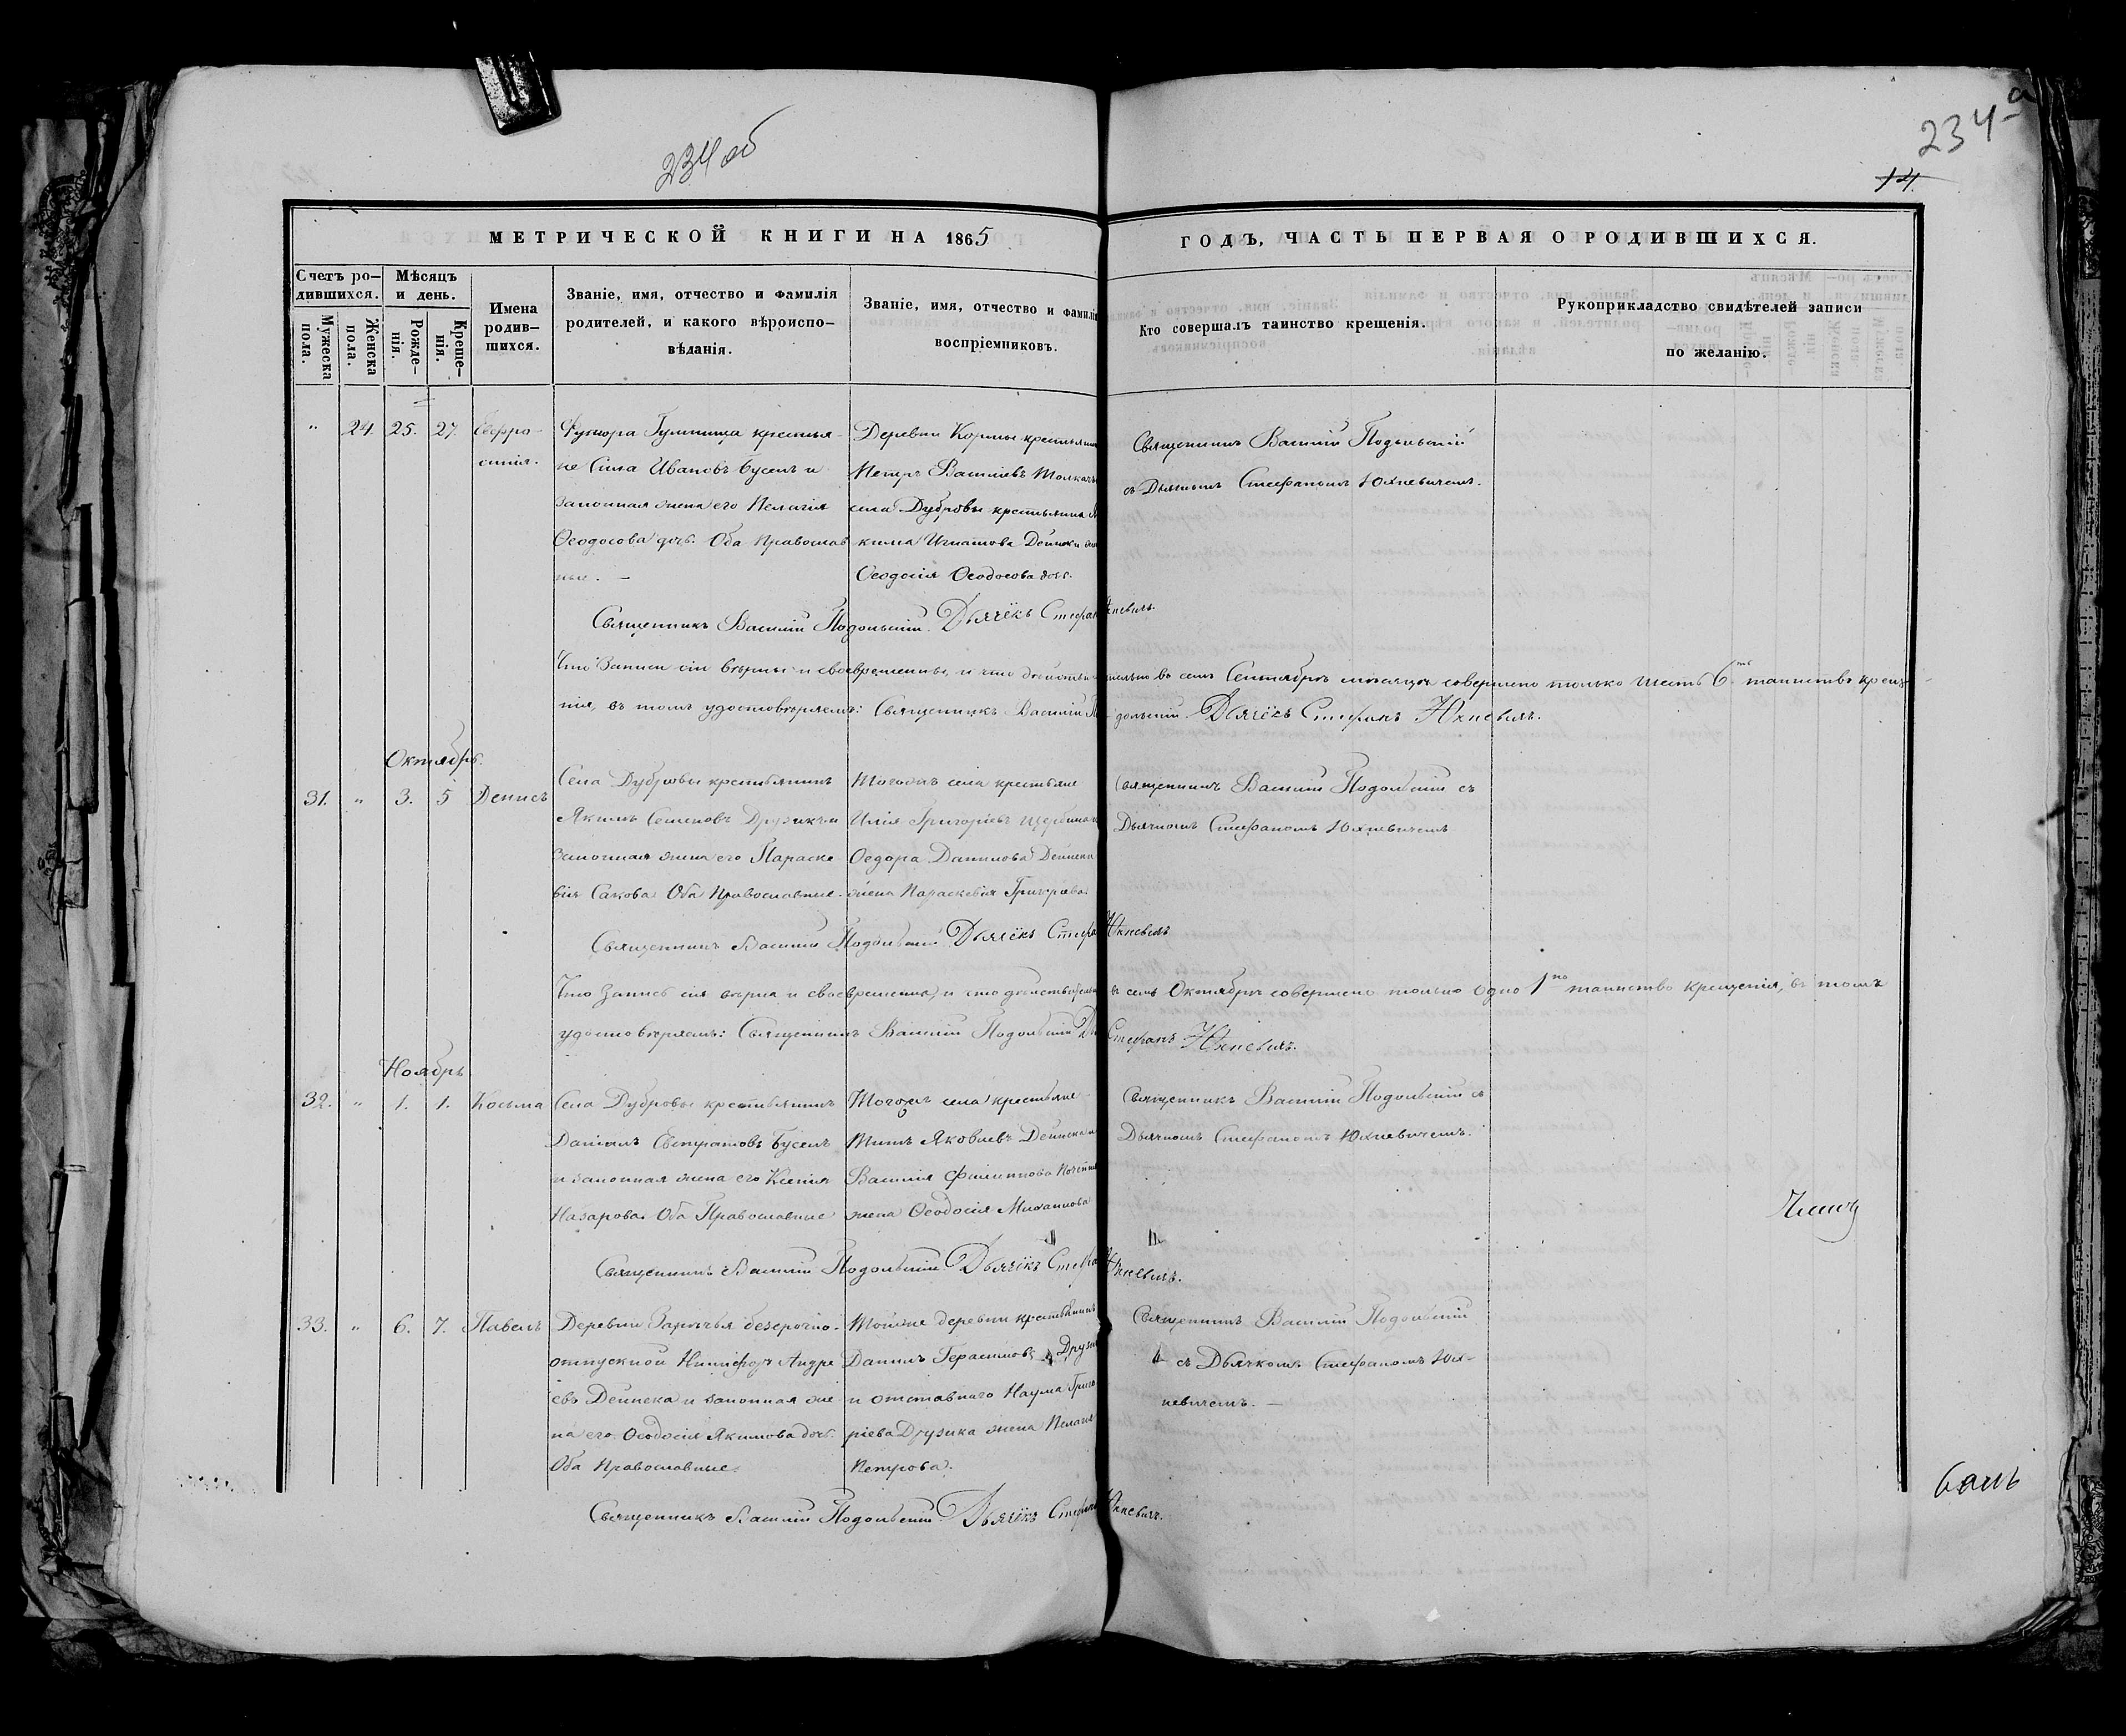 234 об
234а
14
МЕТРИЧЕСКОЙ КНИГИ НА 1865
ГОДЪ, ЧАСТЬ ПЕРВАЯ О РОДИВШИХСЯ.
Счетъ ро-
дившихся.
Мужеска
пола.
Женска
пола.
Мѣсяцъ
и день.
Рожде-
нія.
Креще-
нія.
Имена
родив-
шихся.
Званіе, имя, отчество и фамилія
родителей, и какого вѣроиспо-
вѣданія.
Званіе, имя, отчество и фамилі
воспріемниковъ.
Кто совершалъ таинство крещенія.
Рукоприкладство свидѣтелей записи
по желанію.
" 24. 25. 27. Евфро-
синія.
крестья-
не Сила Ивановъ Буселъ и
законная жена его Пелагія
Ѳеодосова доч. Оба Православ
ные. —
Деревни Кормы крестьянин
Петръ Василіевъ Толкачъ
села Дубровы крестьянина
кима Игнатова Дейнеки
Ѳеодосія Ѳеодосова доч.
Священникъ Василій Подольскій
съ Дьячкомъ Стефаномъ Юхневичемъ.
Священникъ Василій Подольскій. Дьячёкъ Стефан Юхневичъ.
Что Записи сіи вѣрны и своевременны, и что дѣйствительно въ семъ Сентябрѣ мѣсяцѣ совершено только шесть 6ть таинствъ креще-
нія, въ томъ удостовѣряемъ: Священникъ Василій Подольскій Дьячёкъ Стефанъ Юхневичъ.
Октябрь.
31. " 3. 5 Денисъ
Села Дубровы крестьянинъ
Якимъ Семеновъ Друзикъ и
законная жена его Параске
вія Сакова. Оба Православные.
Тогожъ села крестьяне
Илія Григоріевъ Щербина и
Ѳедора Данилова Дейнеки
жена Параскевія Григорова.
Священникъ Василій Подольскій съ
Дьячкомъ Стефаномъ Юхневичемъ
Священникъ Василій Подольскій Дьячёкъ Стефа Юхневичъ
Что Запись сія вѣрна и своевременна, и что дѣйствительно въ семъ Октябрѣ совершено только одно 1но таинство крещенія, въ томъ
удостовѣряемъ: Священникъ Василій Подольскій Дь Стефанъ Юхневичъ.
Ноябрь
32. " 1. 1. Косьма
Села Дубровы крестьянинъ
Даніилъ Евстратовъ Буселъ
и законная жена его Ксенія
Назарова. Оба Православные
Тогожъ села крестьяне
Титъ Яковлевъ Дейнека и
Василія Филиппова
жена Ѳеодосія Михаилова
Священникъ Василій Подольскій съ
Дьячкомъ Стефаномъ Юхневичемъ.
Священникъ Василій Подольскій. Дьячёкъ Стефа Юхневичъ.
33. " 6. 7. Павелъ
Деревни Зарѣчья безсрочно-
отпускной Никифоръ Андре
евъ Дейнека и законная же
на его Ѳеодосія Якимова доч.
Оба Православные.
Тойже деревни крестьянинъ
Даніилъ Герасимовъ Друзи
и отставнаго Наума Григо
ріева Друзика жена Пелагія
Петрова.
Священникъ Василій Подольскій
съ Дьячкомъ Стефаномъ Юх-
невичемъ. —
Священникъ Василій Подольскій Дьячёкъ Стефан Юхневичъ.